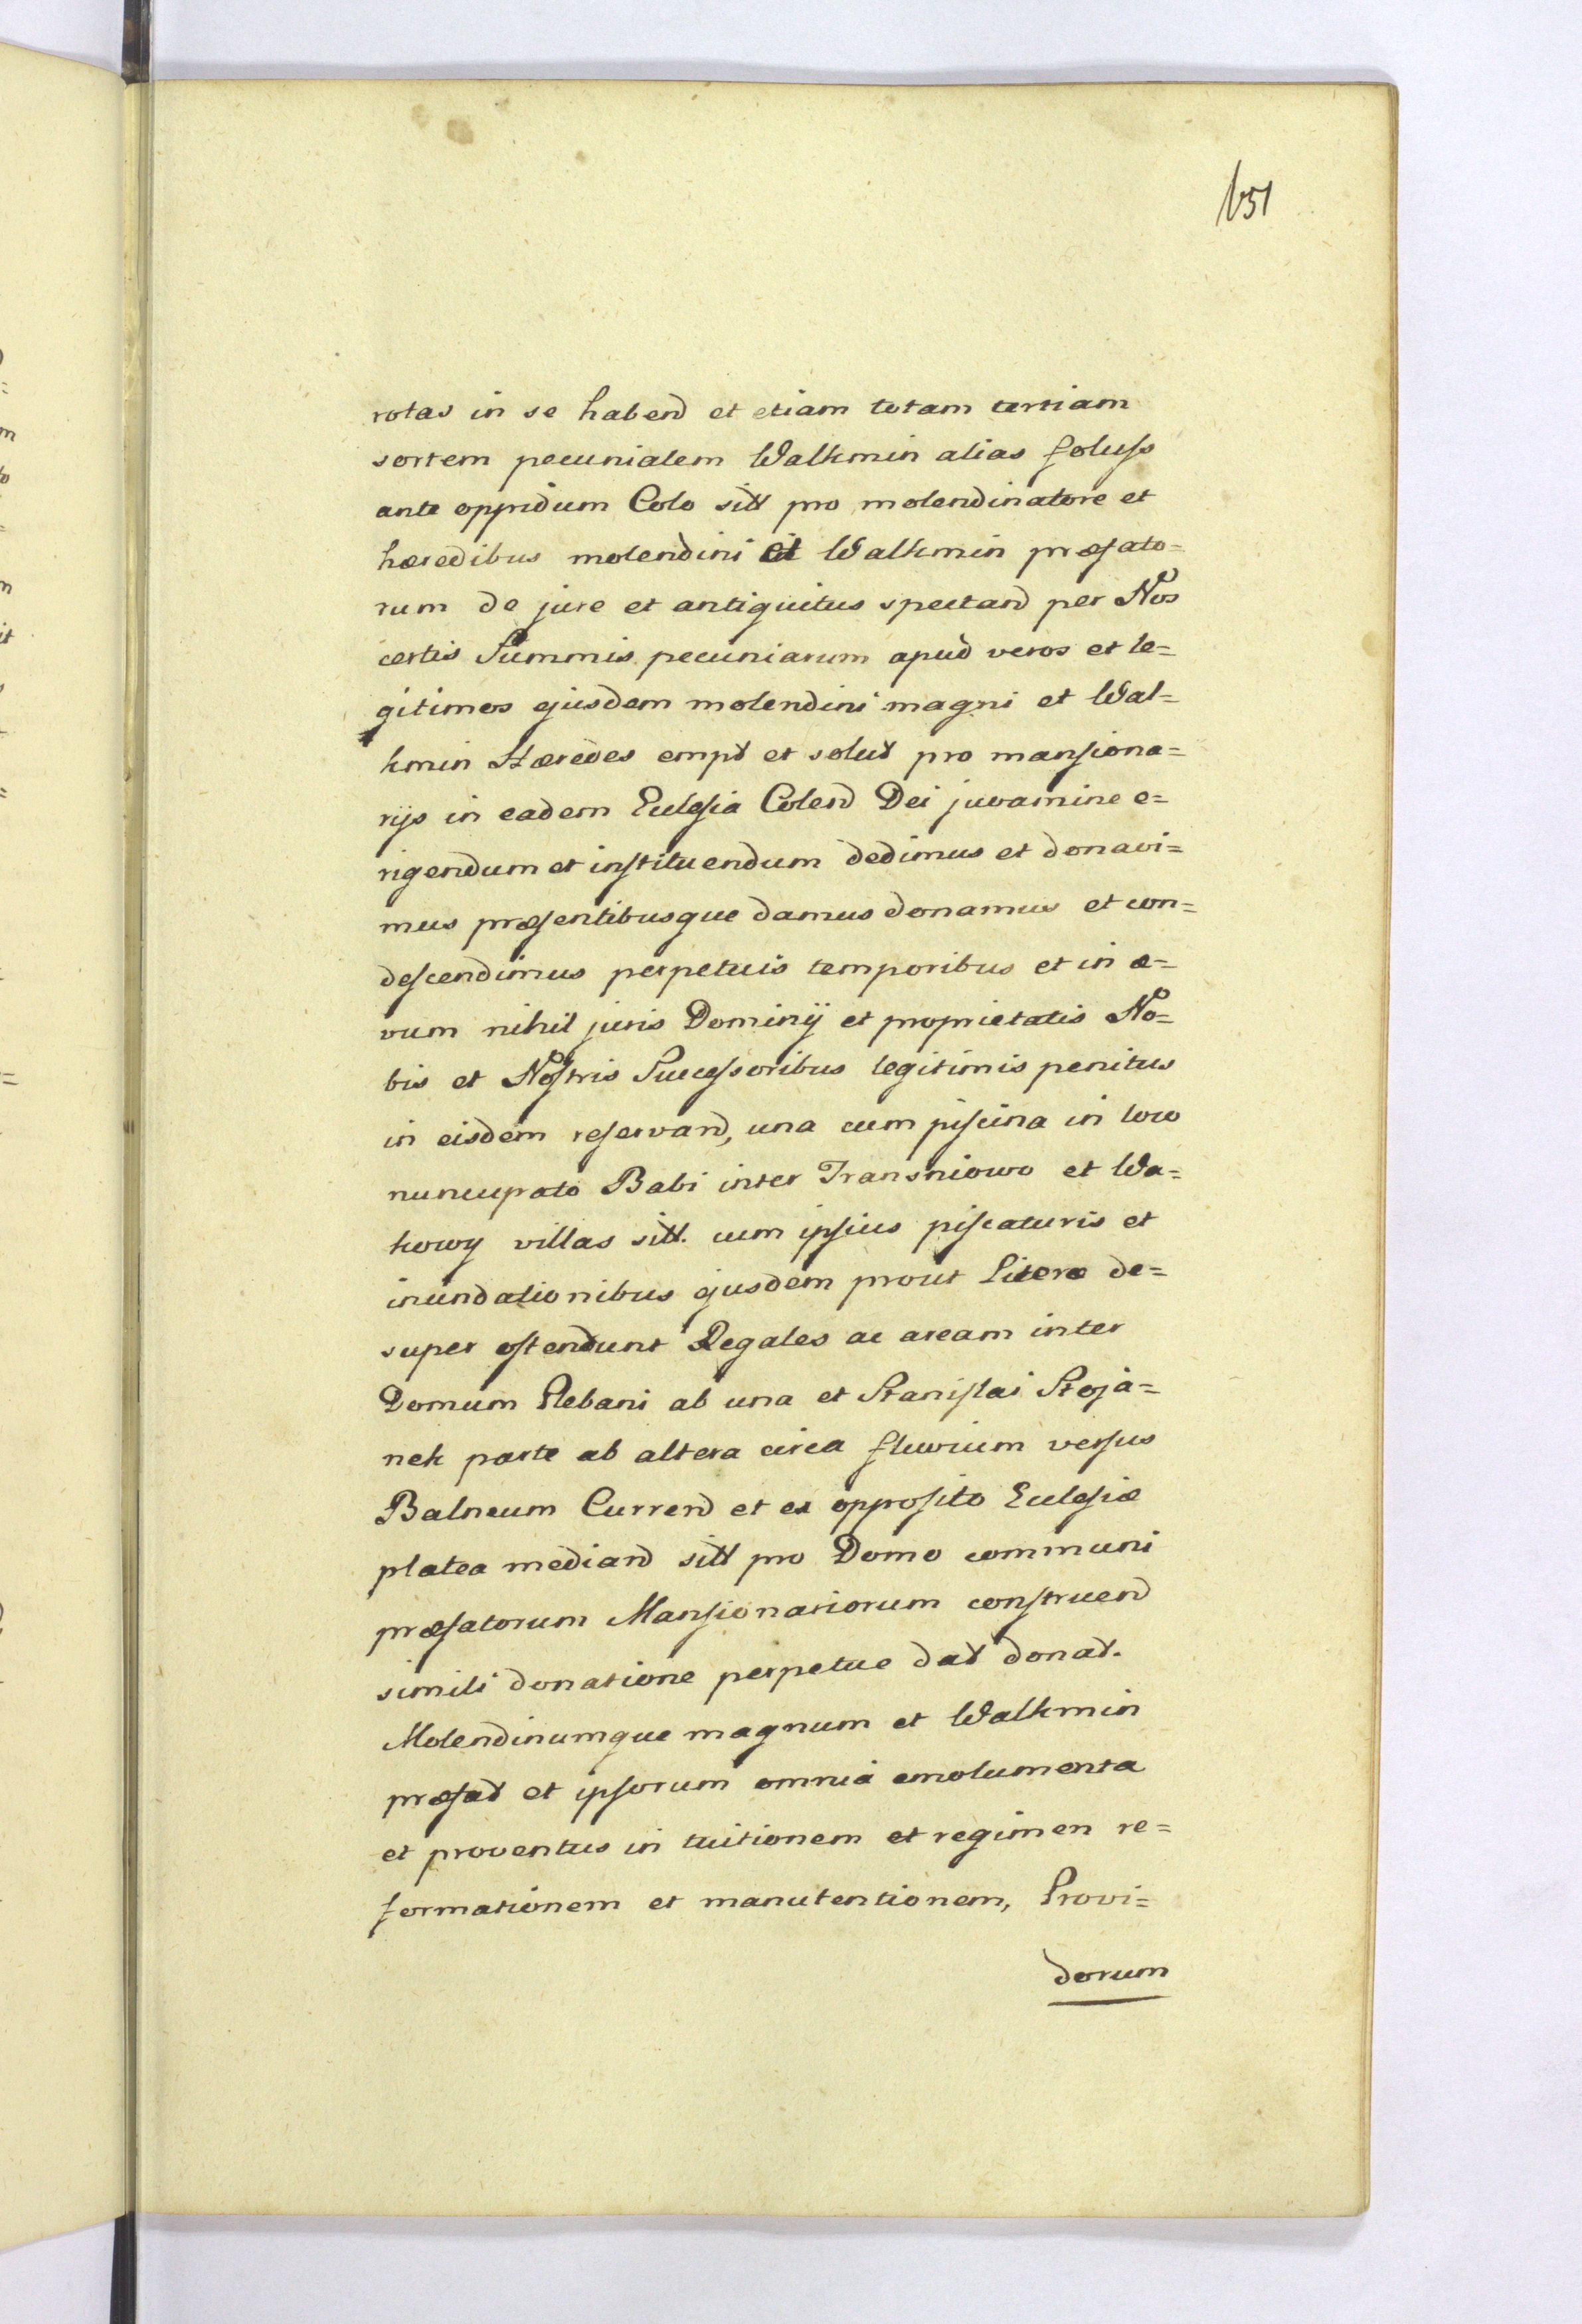 651
rotas in se habend et etiam totam tertiam
sortem pecunialem Walkmin alias foluss
ante oppidum Colo sitt pro molendinatore et
hæredibus molendini et Walkmin præfato=
rum de jure et antiquitus spectand per Nos
certis Summis pecuniarum apud veros et le=
gitimos ejusdem molendini magni et Wal=
kmin Hæredes empt et solut pro mansiona=
rijs in eadem Eclesia Colend Dei juvamine e=
rigendum et instituendum dedimus et donavi=
mus præsentibusque damus donamus et con=
descendimus perpetuis temporibus et in æ=
vum nihil juris Dominij et proprietatis No=
bis et Nostris Successoribus legitimis penitus
in eisdem reservand, una cum piscina in loco
nuncupato Babi inter Transniowo et Wa=
kowy villas sitt. cum ipsius piscaturis et
inundationibus ejusdem prout Literæ de=
super ostendunt Regales ac aream inter
Domum Plebani ab una et Stanislai Stoja=
nek parte ab altera circa fluvium versus
Balneum Currend et ex opposito Eclesiæ
platea mediand sitt pro Domo communi
præfatorum Mansionariorum construend
simili donatione perpetue dat donat.
Molendinumque magnum et Walkmin
præfat et ipsorum omnia emolumenta
et proventus in tuitionem et regimen re=
formationem et manutentionem, Provi=
dorum